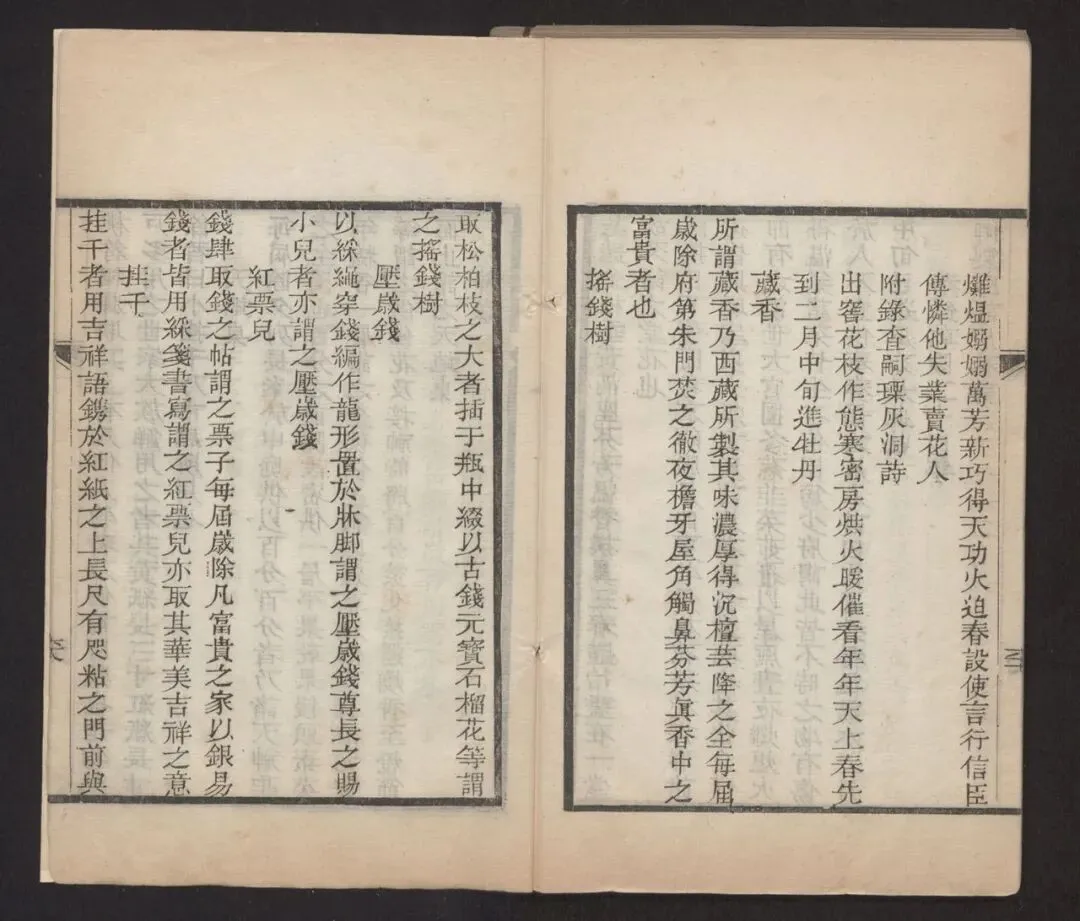 爊熅嫋嫋萬芳新巧得天功火迫春設使言行信臣
傳憐他失業賣花人
附錄查嗣瑮灰洞詩
出窖花枝作態寒密房烘火暖催看年年天上春先
到二月中旬進牡丹
藏香
所謂藏香乃西藏所製其味濃厚得沉檀芸降之全每屆
歲除府第朱門焚之徹夜檐牙屋角觸鼻芬芳眞香中之
富貴者也
搖錢樹
取松柏枝之大者插于瓶中綴以古錢元寶石榴花等謂
之搖錢樹
壓歲錢
以綵繩穿錢編作龍形置於牀脚謂之壓歲錢尊長之賜
小兒者亦謂之壓歲錢
紅票兒
錢肆取錢之帖謂之票子每屆歲除凡富貴之家以銀易
錢者皆用綵箋書寫謂之紅票兒亦取其華美吉祥之意
挂千
挂千者用吉祥語鐫於紅紙之上長尺有咫粘之門前與